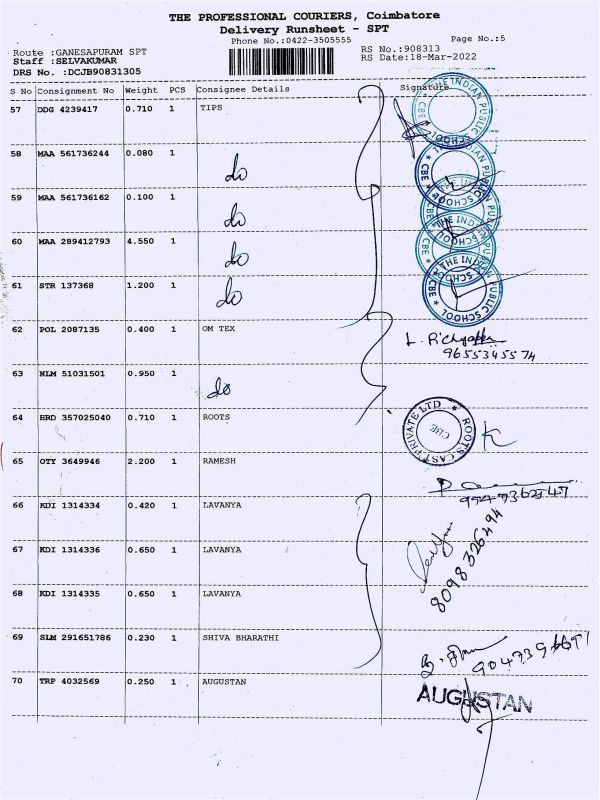 THE PROFESSIONAL COURIERS, Coimbatore
Delivery Runsheet - SPT
Phone No.:0422-3505555
Page No.:5
Route :GANESAPURAM SPT
Staff :SELVAKUMAR
DRS No. :DCJB90831305
RS No.:908313
RS Date:18-Mar-2022
S No Consignment No Weight PCS Consignee Details Signature
57 DDG 4239417 0.710 1 TIPS
THE INDIAN PUBLIC SCHOOL * CBE *
58 MAA 561736244 0.080 1 do
THE INDIAN PUBLIC SCHOOL * CBE *
59 MAA 561736162 0.100 1 do
60 MAA 289412793 4.550 1 do
61 STR 137368 1.200 1 do
THE INDIAN PUBLIC SCHOOL * CBE *
62 POL 2087135 0.400 1 OM TEX
9655345574
63 NLM 51031501 0.950 1 do
64 HRD 357025040 0.710 1 ROOTS
ROOTS CAST PRIVATE LTD * CBE
65 OTY 3649946 2.200 1 RAMESH
66 KDI 1314334 0.420 1 LAVANYA
67 KDI 1314336 0.650 1 LAVANYA
8098326494
68 KDI 1314335 0.650 1 LAVANYA
69 SLM 291651786 0.230 1 SHIVA BHARATHI
70 TRP 4032569 0.250 1 AUGUSTAN
AUGUSTAN